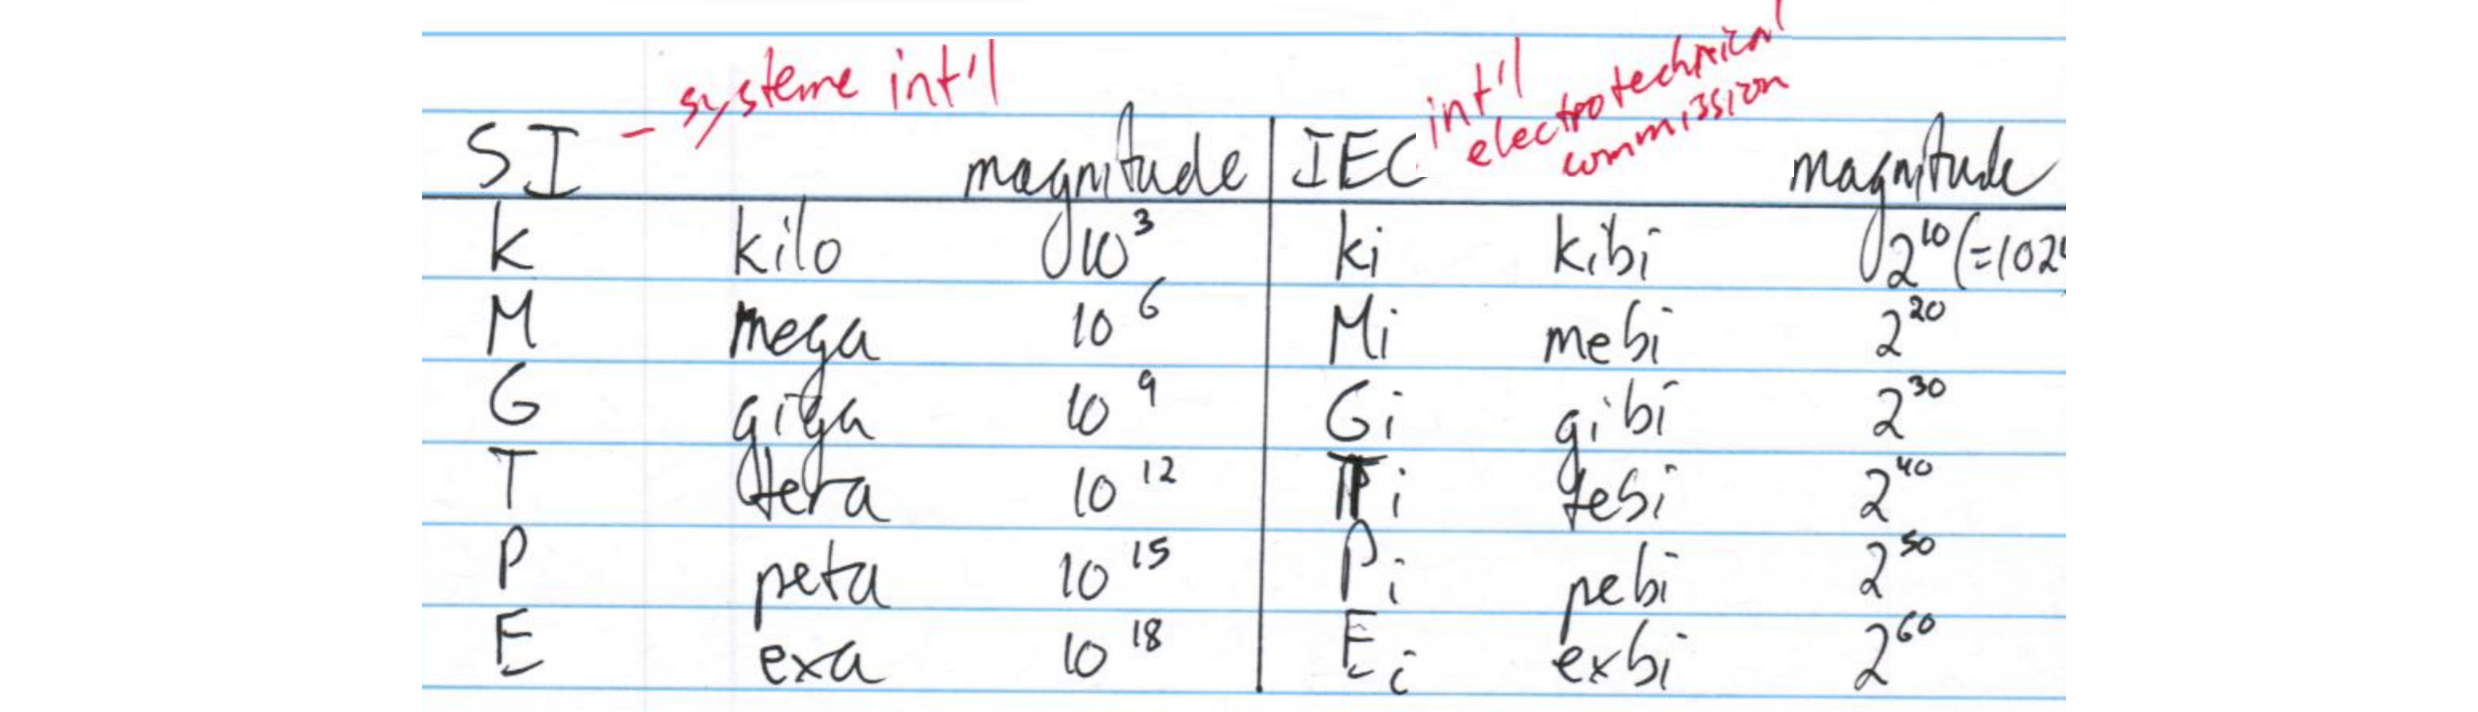 - systeme int'l
int'l
electrotechnical
commission
SI magnitude IEC magnitude
k kilo 10³ ki kibi 2¹⁰ (=102
M mega 10⁶ Mi mebi 2²⁰
G giga 10⁹ Gi gibi 2³⁰
T tera 10¹² Ti tebi 2⁴⁰
P peta 10¹⁵ Pi pebi 2⁵⁰
E exa 10¹⁸ Ei exbi 2⁶⁰